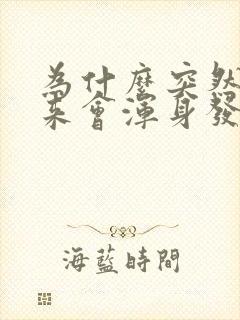 為什麼突然
来會渾身發
海藍時間